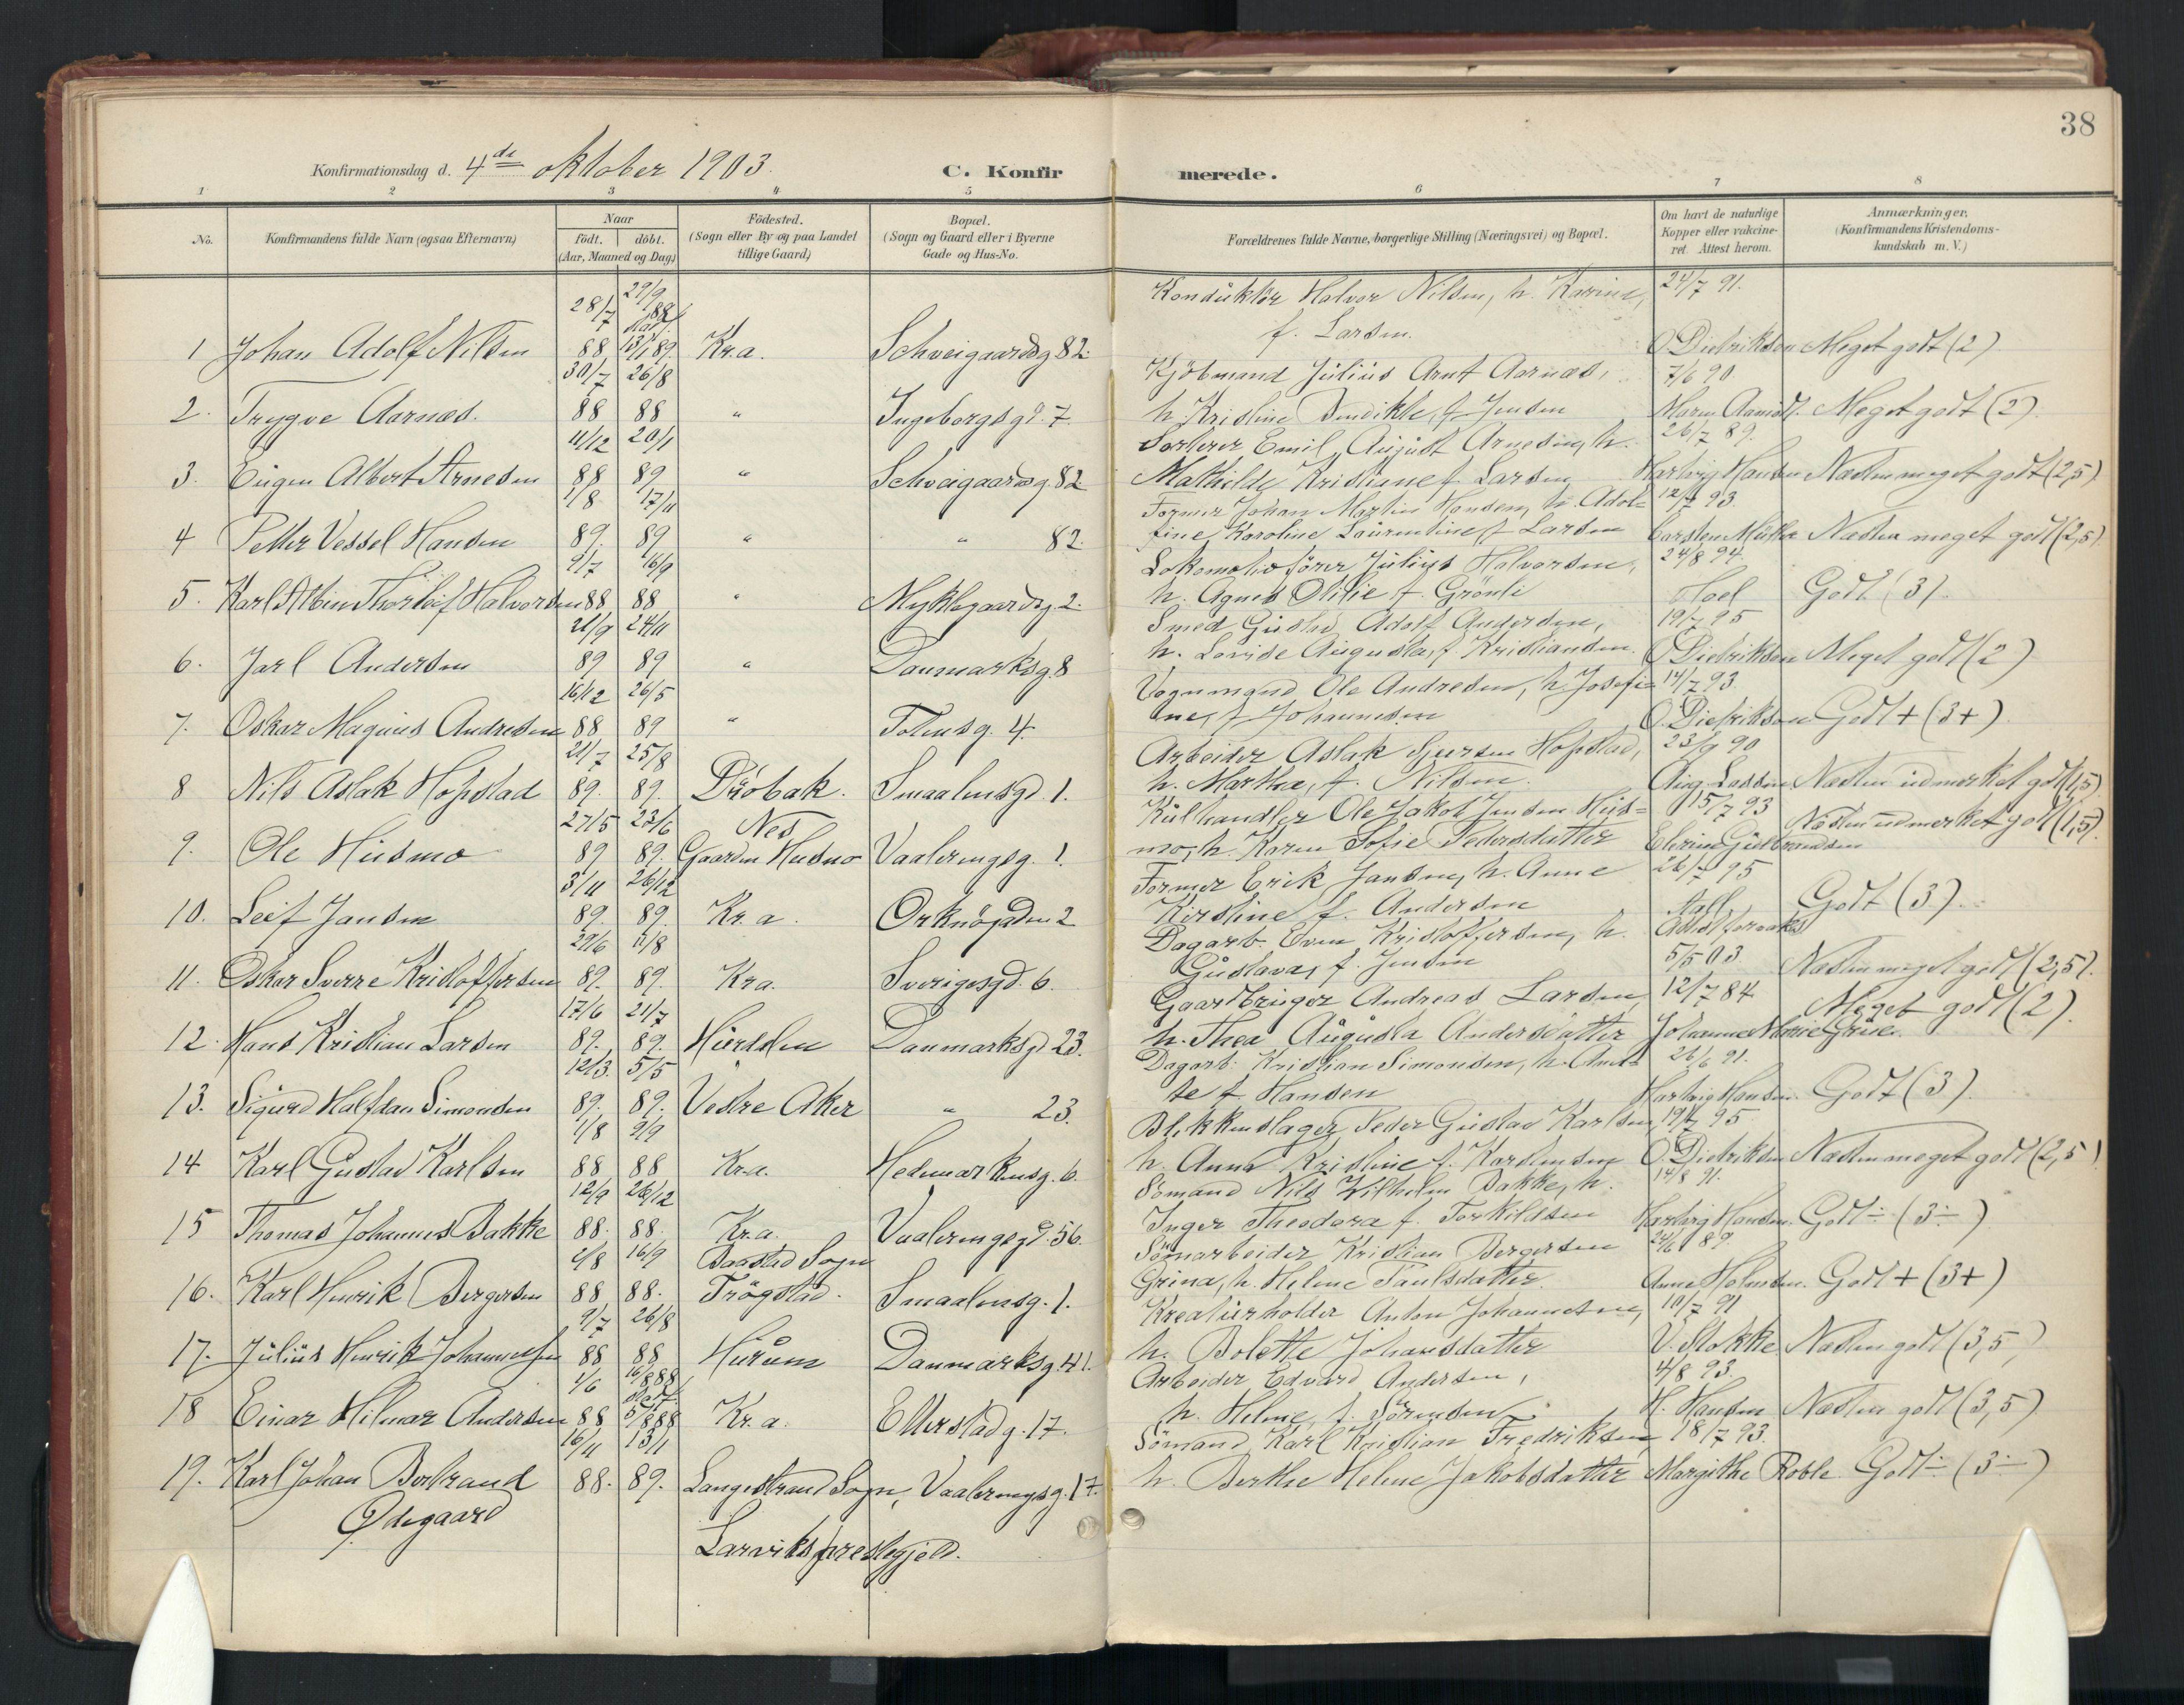 38
Konfirmationsdag d. 4de oktober 1903.
C. Konfirmerede.
1 2 3 4 5 6 7 8
No.
Konfirmandens fulde Navn (ogsaa Efternavn)
Naar
födt. döbt.
(Aar, Maaned og Dag)
Födested.
(Sogn eller By og paa Landet
tillige Gaard)
Bopæl.
(Sogn og Gaard eller i Byerne
Gade og Hus-No.
Forældrenes fulde Navne, borgerlige Stilling (Næringsvei) og Bopæl.
Om havt de naturlige
Kopper eller vakcine-
ret. Attest herom.
Anmærkninger.
(Konfirmandens Kristendoms-
kundskab m. V.)
28/7 29/9 88 Konduktör Halvor Nilsen, h. Karine, 24/7 91.
stadf. f. Larsen.
1 Johan Adolf Nilsen 88 13/1 89. Kr.a. Schveigaardsg 82. O. Diedriksen Meget godt (2)
30/7 26/8 Kjöbmand Julius Arnt Aarnæs, 7/6 90
2. Trygve Aarnæs. 88 88 " Ingeborgsgd. 7. h. Kristine Bendikte, f. Jensen Meget godt (2).
11/12 20/1 Sorterer Emil August Arnesen, h. 26/7 89.
3. Eugen Albert Arnesen 88 89 " Schveigaardsg. 82 Mathilde Kristiane f. Larsen Hartvig Hansen Næsten meget godt (2,5)
1/8 17/11 Former Johan Martin Hansen, h. Adol= 12/7 93.
4 Petter Vessel Hansen 89. 89 " " 82. fine Karoline Laurentine f. Larsen Carsten Müller Næsten meget godt (2,5).
9/7 16/9 Lokomotivförer Julius Halvorsen, 24/8 94
5. Karl Albin Thorleif Halvorsen 88 88 " Myklegaardsg. 2. h. Agnes Otilie f. Grönli Hoel Godt (3).
21/9 24/11 Smed Gustav Adolf Andersen, 19/7 95
6. Jarl Andersen 89 89 " Danmarksg. 8 h. Lovise Augusta, f. Kristiansen. O. Diedriksen Meget godt (2)
16/12 26/5 Vognmand Ole Andresen, h. Josefi= 14/7 93.
7. Oskar Magnus Andresen 88 89 " Totensg. 4. ne, f. Johannesen O. Diedriksen Godt + (3+)
21/7 25/8 Arbeider Aslak Sjursen Hopstad, 23/9 90
8 Nils Aslak Hopstad 89. 89. Dröbak. Smaalensgd. 1. h. Martha, f. Nilsen. Aug. Lassen Næsten udmerket godt (1,5)
27/5 23/6 Nes Kulhandler Ole Jakob Jensen Hus= 15/7 93
9. Ole Husmo 89 89. Gaarden Husmo Vaalerengsg. 1. mo, h. Karen Sofie Pedersdatter Elerine Gulbrandsen Næsten udmerket godt (1,5).
3/11 26/12 Former Erik Jansen, h. Anne 26/7 95
10. Leif Jansen 89. 89. Kr. a. Orknögaden 2 Kirstine f. Andersen Aall Godt (3).
29/6 11/8 Dagarb. Even Kristoffersen, h.
11. Oskar Sverre Kristoffersen 89. 89. Kr.a. Sverigesgd. 6. Gustava, f. Jensen 5/5 03 Næsten meget godt (2,5).
17/6 21/7 Gaardbruger Andreas Larsen, 12/7 84
12. Hans Kristian Larsen 89. 89. Hurdalen Danmarksgd 23. h. Thea Augusta Andersdatter Johanne Marie Grue. Meget godt (2).
12/3. 5/5 Dagarb. Kristian Simonsen, h. Anet= 26/6 91.
13. Sigurd Halfdan Simonsen 89. 89. Vestre Aker " 23. te f. Hansen Hartvig Hansen Godt (3).
1/8 2/9 Blikkenslager Peder Gustav Karlsen, 19/7 95
14 Karl Gustav Karlsen 88 88 Kr.a. Hedemarkensg. 6. h. Anna Kristine f. Karstensen O. Diedriksen Næsten meget godt (2,5)
12/9 26/12 Sömand Nils Wilhelm Bakke, h. 14/8 91.
15 Thomas Johannes Bakke 88. 88. Kr.a. Vaalerengsgd. 56. Inger Theodora f. Torkildsen Hartvig Hansen. Godt ÷ (3÷)
2/8 16/9 Baastad Sogn Sömarbeider Kristian Bergersen 24/6 89.
16. Karl Henrik Bergersen 88 88. Trögstad. Smaalensg. 1. Grina, h. Helene Paulsdatter. Anne Holmsen. Godt + (3+)
9/7 26/8 Kreaturholder Anton Johannesen, 10/7 91
17. Julius Henrik Johannessen 88 88 Hurum Danmarksg. 41. h. Bolette Johansdatter V. Stokke Næsten godt (3,5)
1/6 16/8 88 Arbeider Edvard Andersen, 4/8 93.
stadf.
18 Einar Hilmar Andersen 88 5/8 88 Kr. a. Etterstadg. 17. h. Helene, f. Sörensen H. Hansen Næsten godt (3,5)
16/11 13/1 Sömand Karl Kristian Fredriksen 18/7 93.
19. Karl Johan Bertrand 88. 89. Langestrand Sogn, Vaalerengsg. 17. h. Berthe Helene Jakobsdatter Margithe Roble Godt ÷ (3÷)
Ødegaard
Larviks prestegjeld.